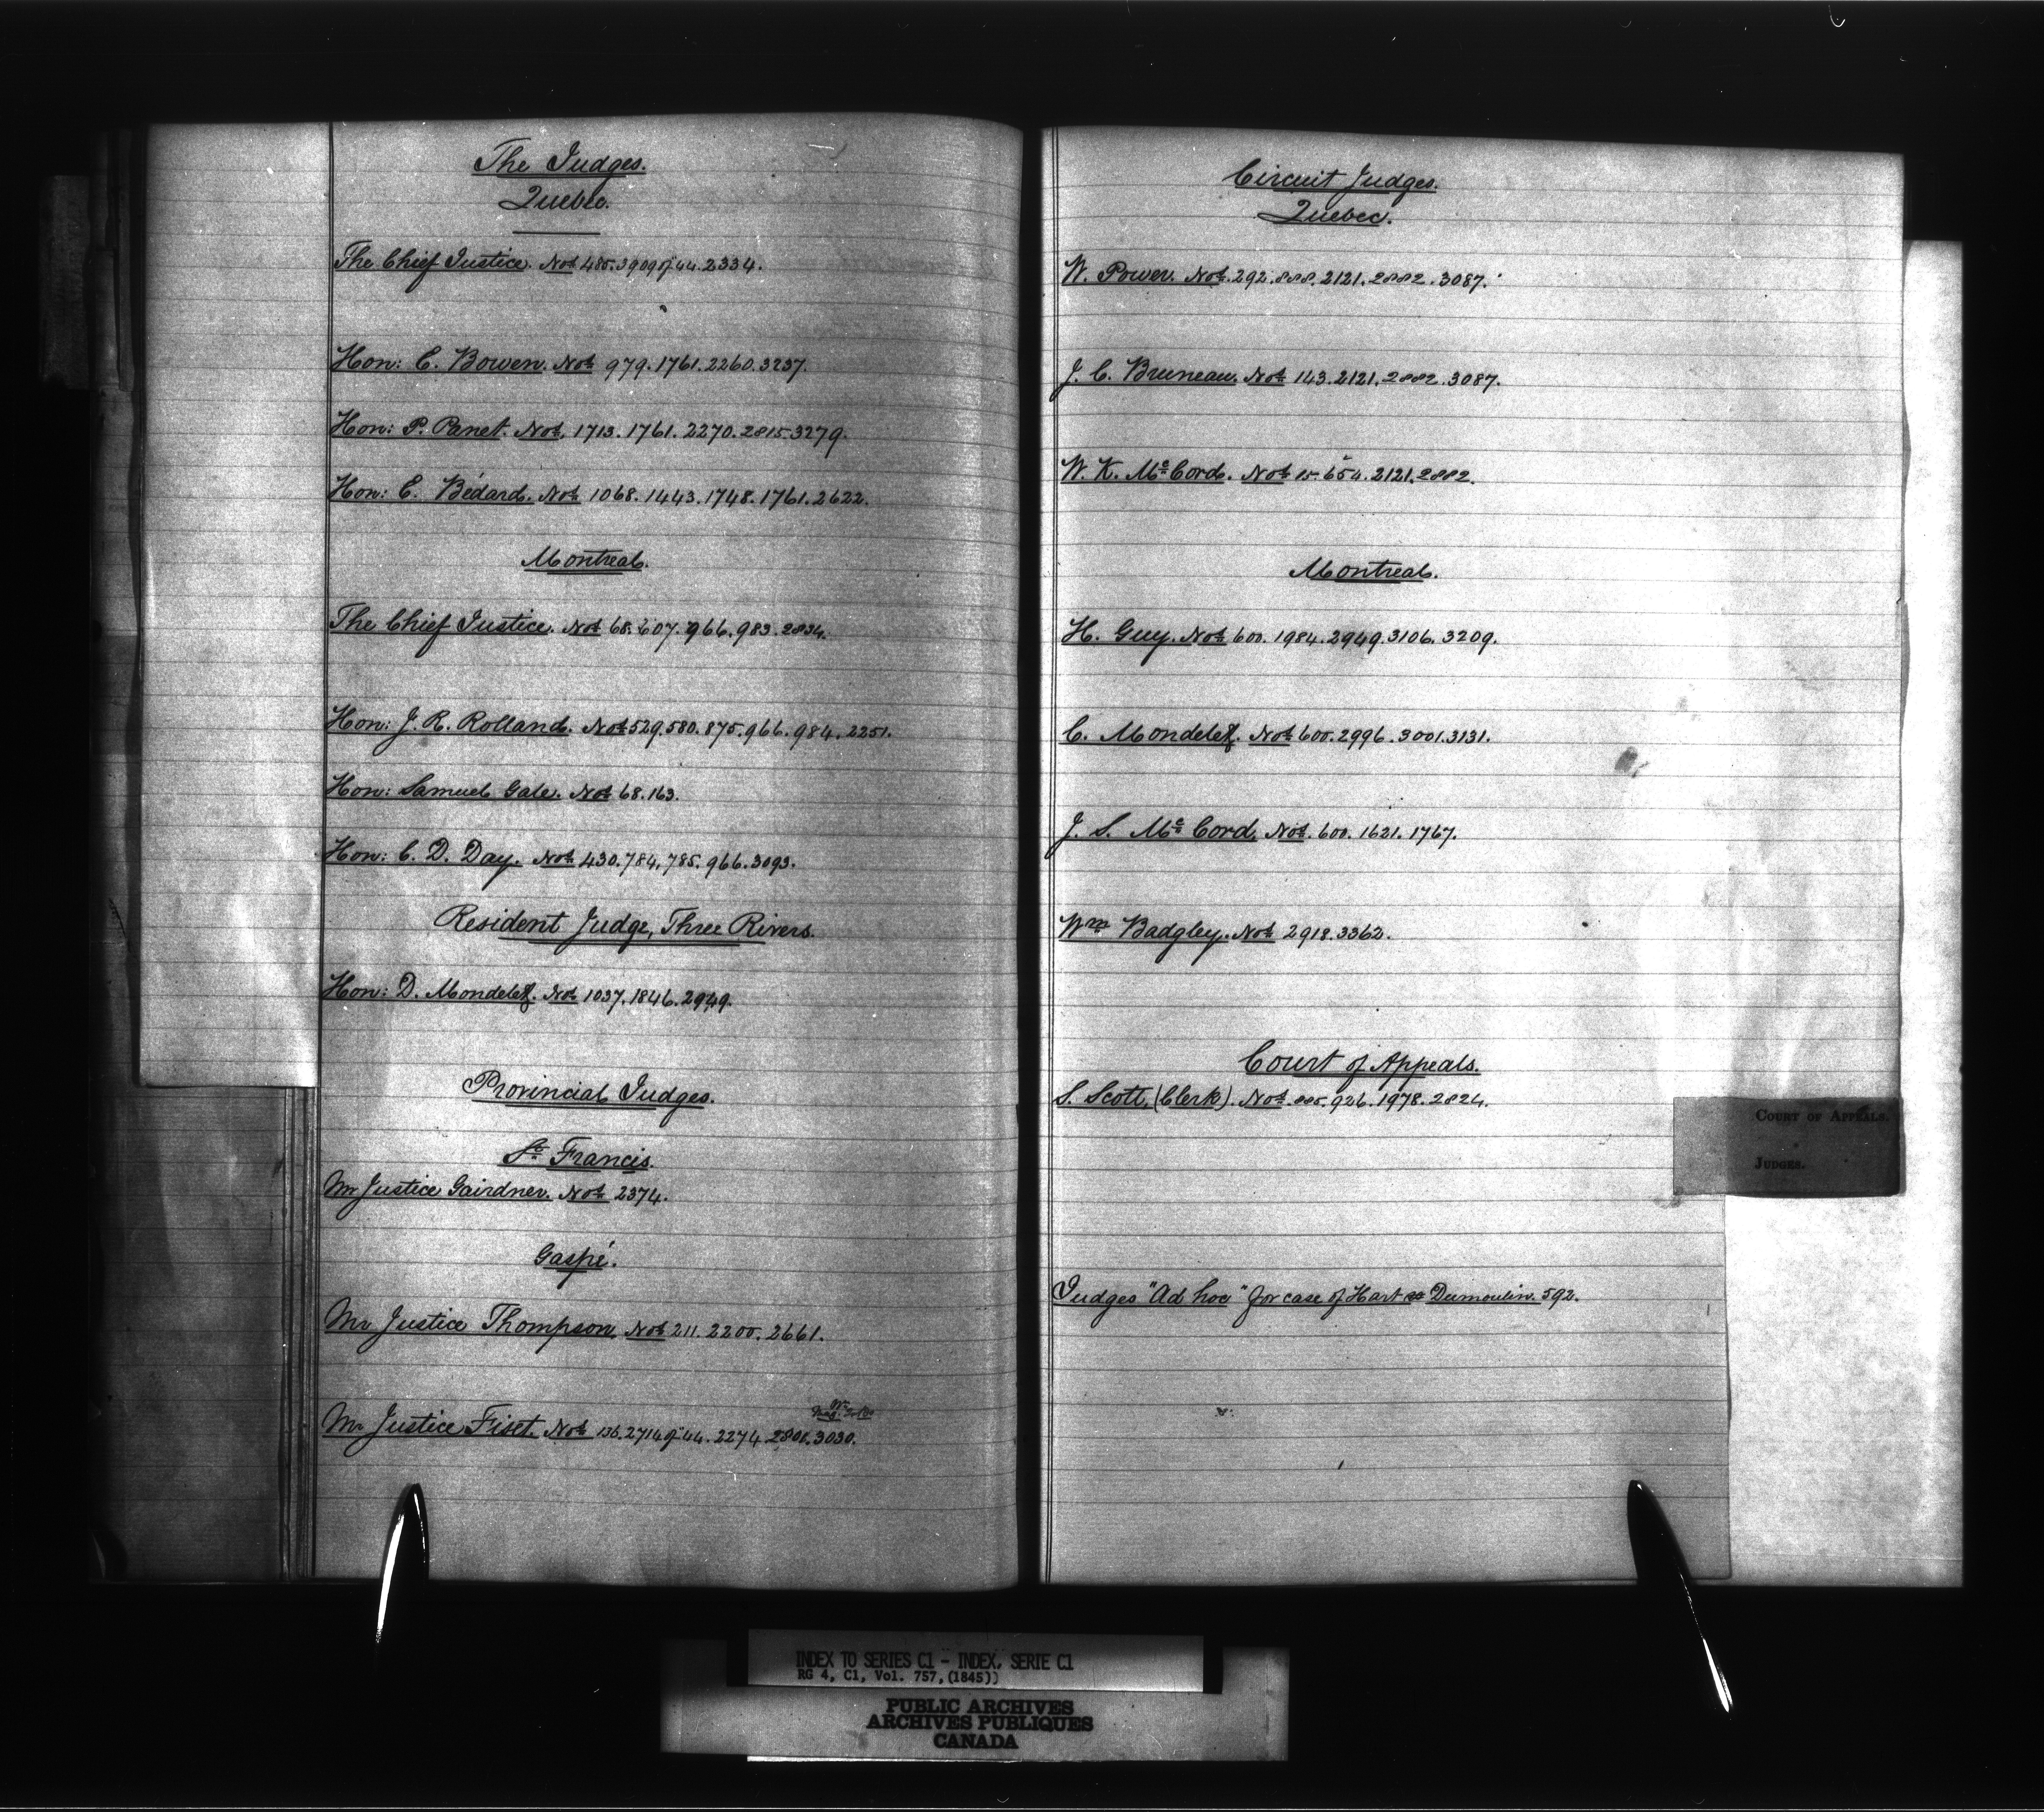 The Judges.
Quebec.
The Chief Justice. Nos 485.3909 of 44.2334.
Hon: E. Bowen. Nos 979.1761.2260.3237.
Hon: P. Panet. Nos 1713.1761.2270.2815.3279.
Hon: E. Bédard. Nos 1068.1443.1748.1761.2622.
Montreal.
The Chief Justice. Nos 68.607.966.983.2834.
Hon: J. R. Rolland. Nos 529.580.875.966.984.2251.
Hon: Samuel Gale. Nos 68.163.
Hon: C. D. Day. Nos 430.784.785.966.3093.
Resident Judge, Three Rivers.
Hon: D. Mondelet. Nos 1037.1846.2949.
Provincial Judges.
St Francis.
Mr Justice Gairdner. Nos 2374.
Gaspé.
Mr Justice Thompson. Nos 211.2200.2661.
Mr Justice Fiset. Nos 136.2714 of 44.2274.2801.3030.
Circuit Judges.
Quebec.
W. Power. Nos 292.888.2121.2882.3087.
J. C. Bruneau. Nos 143.2121.2882.3087.
W. K. McCord. Nos 15.654.2121.2882.
Montreal.
H. Guy. Nos 600.1984.2949.3106.3209.
C. Mondelet. Nos 600.2996.3001.3131.
J. S. McCord. Nos 600.1621.1767.
Wm Badgley. Nos 2918.3362.
Court of Appeals.
S. Scott, (Clerk). Nos 885.926.1978.2824.
COURT OF APPEALS.
JUDGES.
Judges "Ad hoc" for case of Hart Dumoulin. 592.
INDEX TO SERIES C1 - INDEX, SERIE C1
RG 4, C1, Vol. 757, (1845))
PUBLIC ARCHIVES
ARCHIVES PUBLIQUES
CANADA